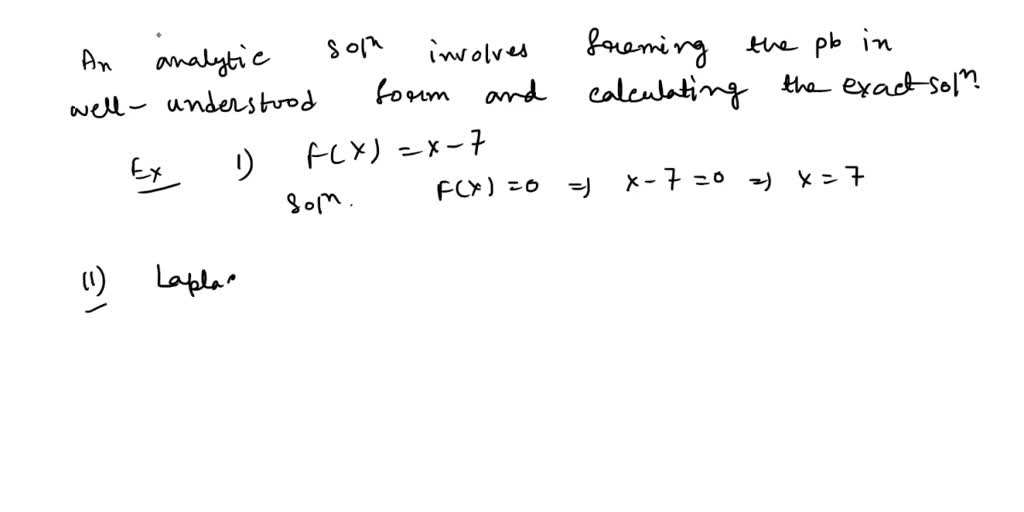 An analytic solⁿ involves foreming the pb in
well- understood form and calculating the exact solⁿ.
Ex 1) F(x) = x - 7
Solⁿ. F(x) = 0 => x - 7 = 0 => x = 7
(11) Lapla